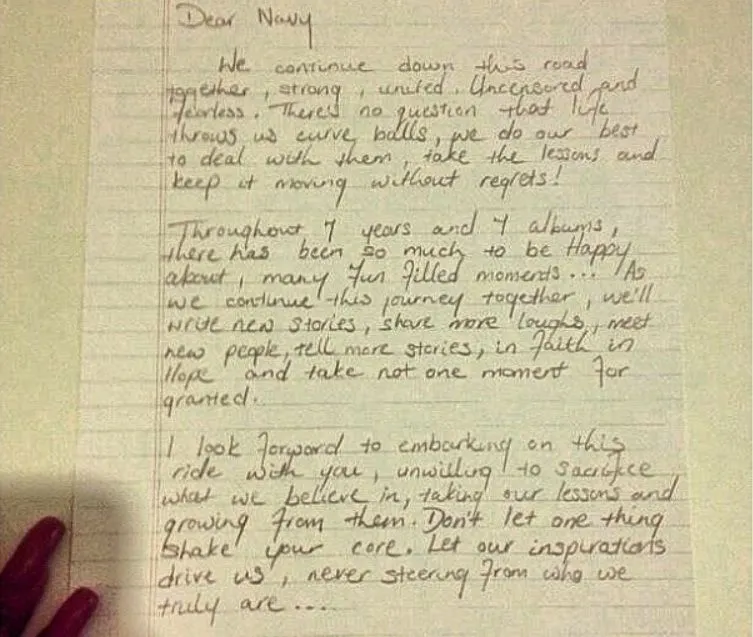 Dear Navy
We continue down this road
together, strong, united. Uncensored and
fearless. There's no question that life
throws us curve balls, we do our best
to deal with them, take the lessons and
keep it moving without regrets!
Throughout 7 years and 7 albums,
there has been so much to be Happy
about, many fun filled moments... As
we continue this journey together, we'll
write new stories, share more laughs, meet
new people, tell more stories, in faith in
Hope and take not one moment for
granted.
I look forward to embarking on this
ride with you, unwilling to sacrifice
what we believe in, taking our lessons and
growing from them. Don't let one thing
shake your core. Let our inspirations
drive us, never steering from who we
truly are....